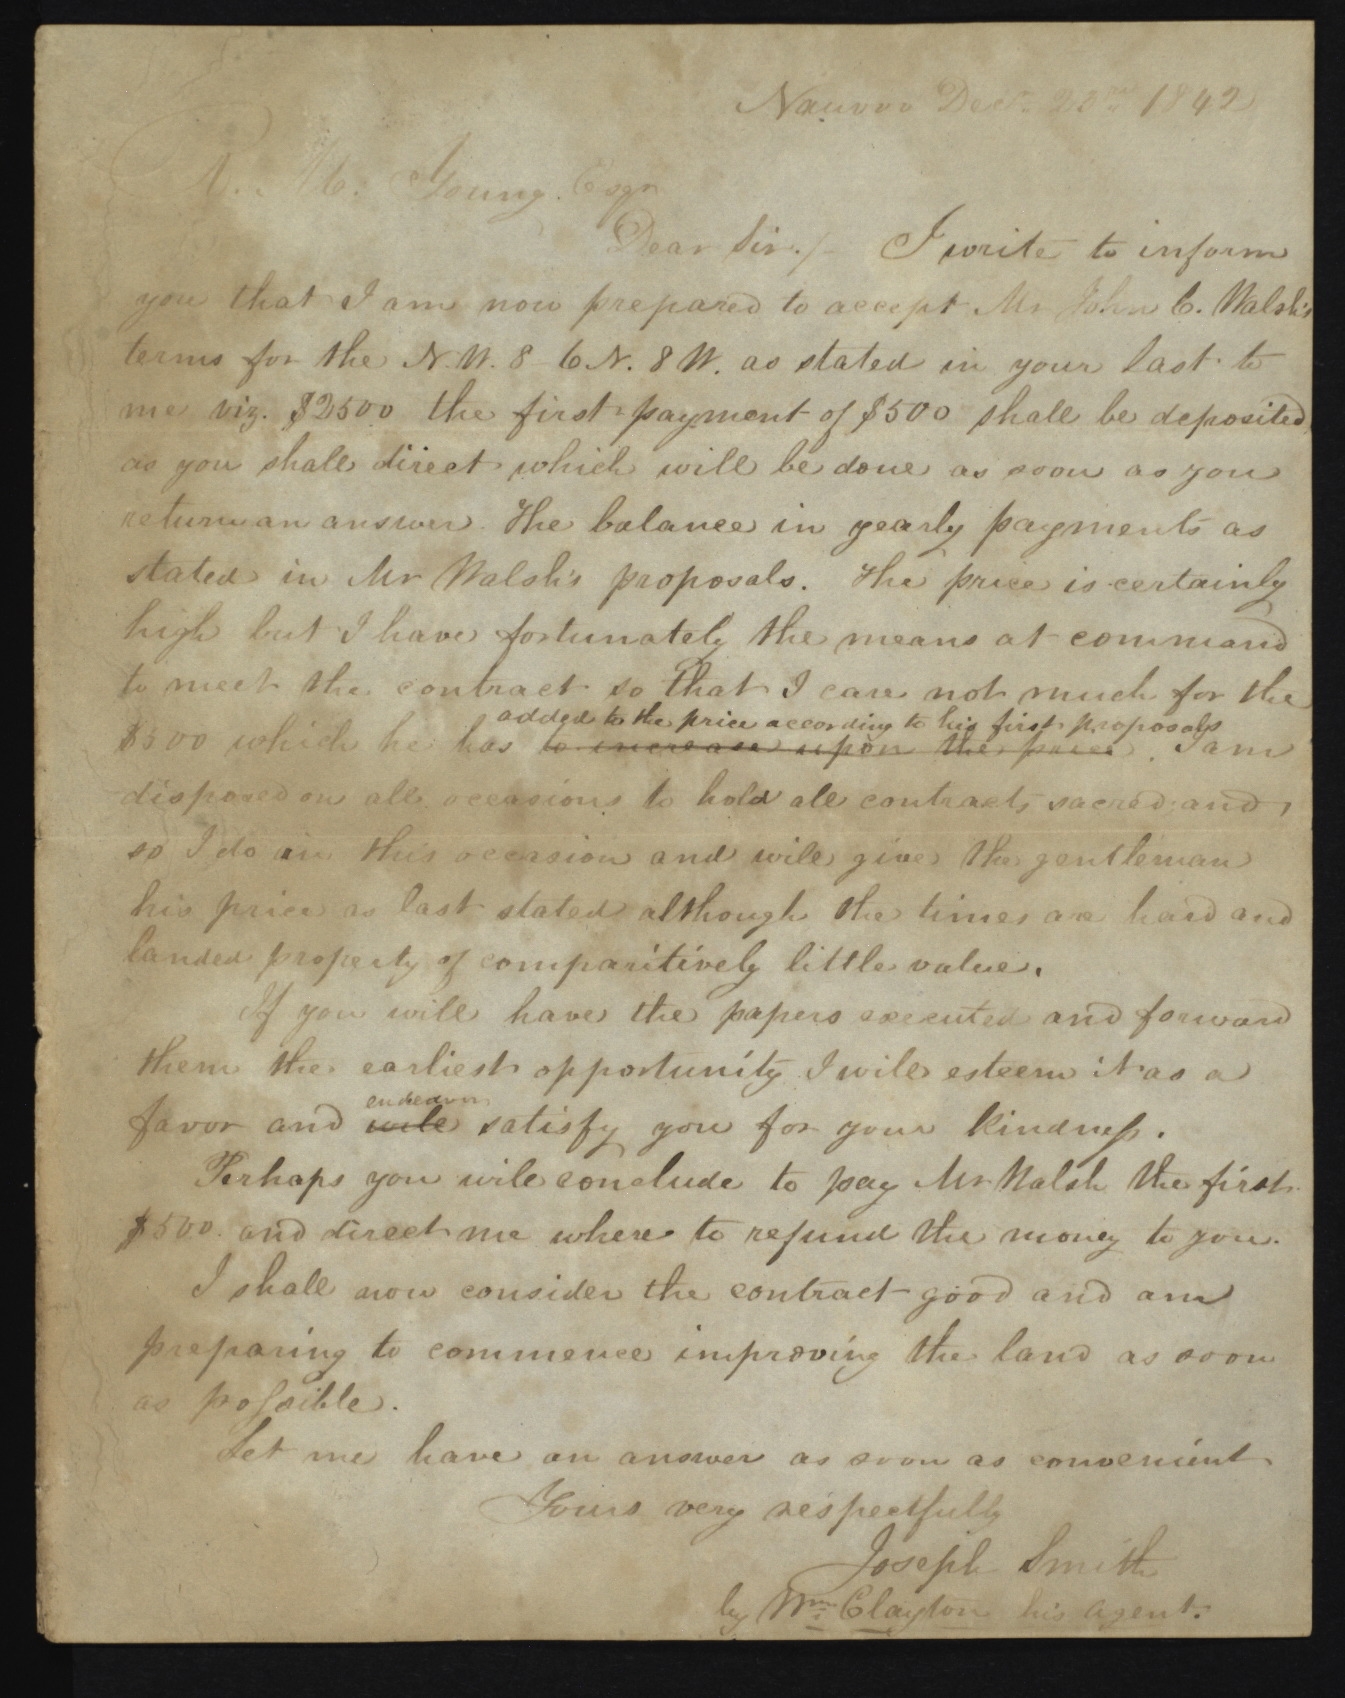 Nauvoo Decr. 23rd 1842
R. M. Young. Esqr
Dear Sir./- I write to inform
you that I am now prepared to accept Mr John C. Walsh's
terms for the N.W. 8 6 N. 8 W. as stated in your last to
me viz. $2500 the first payment of $500 shall be deposited
as you shall direct which will be done as soon as you
return an answer. The balance in yearly payments as
stated in Mr Walsh's proposals. The price is certainly
high but I have fortunately the means at command
to meet the contract so that I care not much for the
added to the price according to his first proposals
$500 which he has to increase upon the price. I am
disposed on all occasions to hold all contracts sacred and,
so I do on this occasion and will give the gentleman
his price as last stated although the times are hard and
landed property of comparitively little value.
If you will have the papers executed and forward
them the earliest opportunity I will esteem it as a
endeavor
favor and will satisfy you for your kindness.
Perhaps you will conclude to pay Mr Walsh the first
$500. and direct me where to refund the money to you.
I shall now consider the contract good and am
preparing to commence improving the land as soon
as possible.
Let me have an answer as soon as convenient
Yours very respectfully
Joseph Smith
by Wm Clayton his agent.